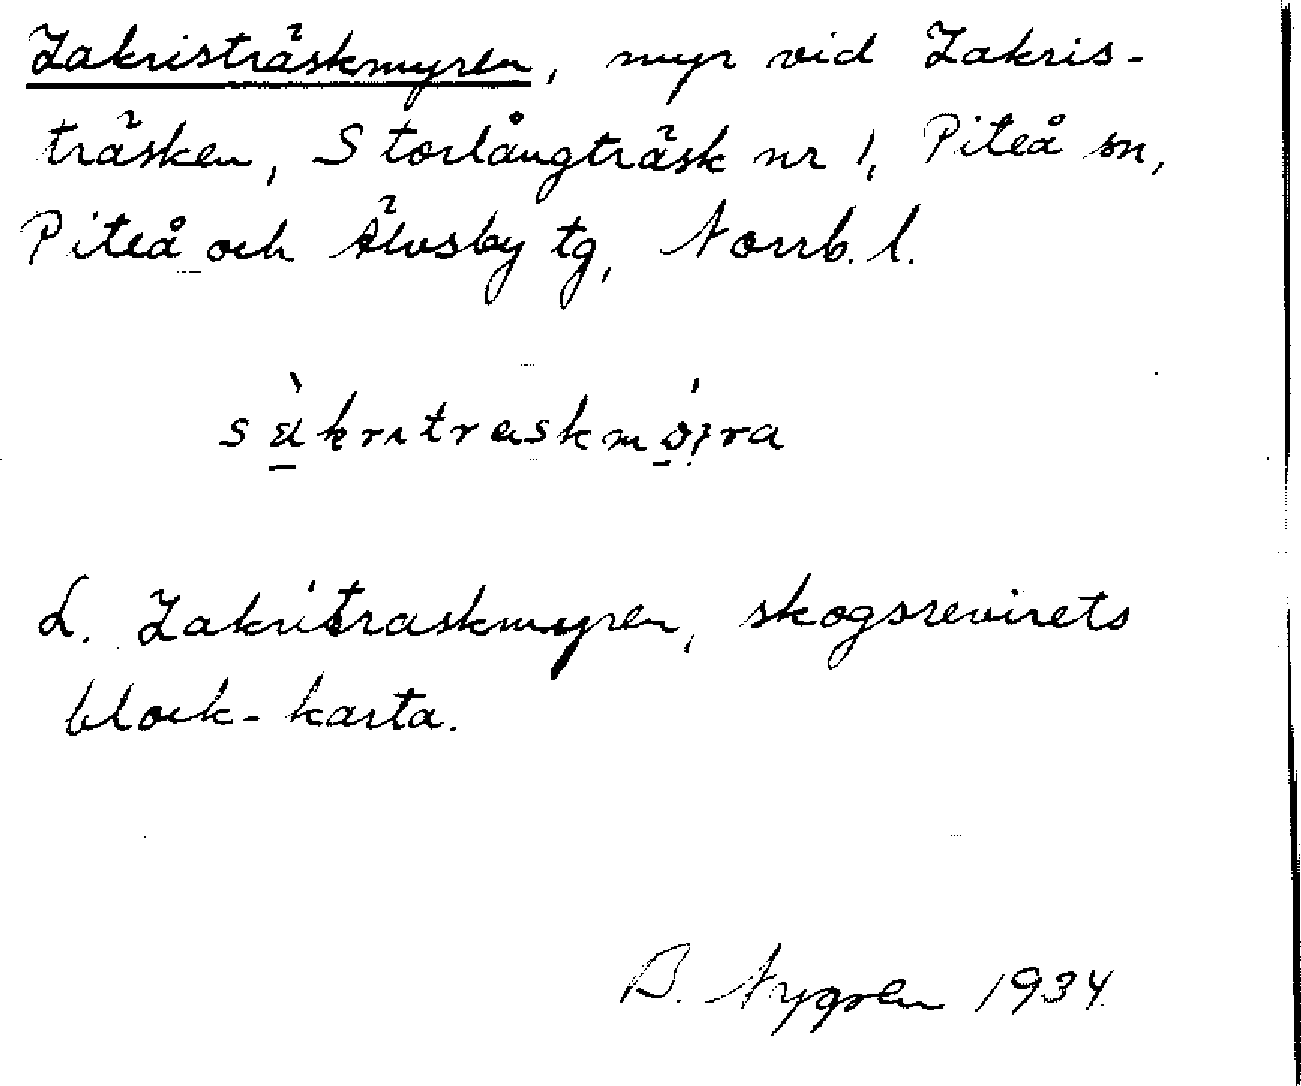 Zakristräskmyren, myr vid Zakris-
träsken, Storlångträsk nr 1, Piteå sn,
Piteå och Älvsby tg, Norrb. l.
L. Zakriträskmyren, skogsrevirets
block-karta.
B. Nygren 1934